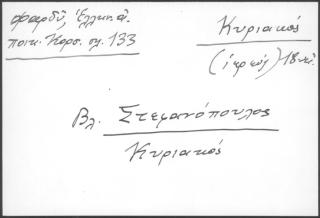 Φαρδῦ, Ἑλληνικ.
ποικ. Κορσ. σλ. 133
Κυριακός
(ἱερεύς) 18 αἰ.
Βλ. Στεφανόπουλος
Κυριακός